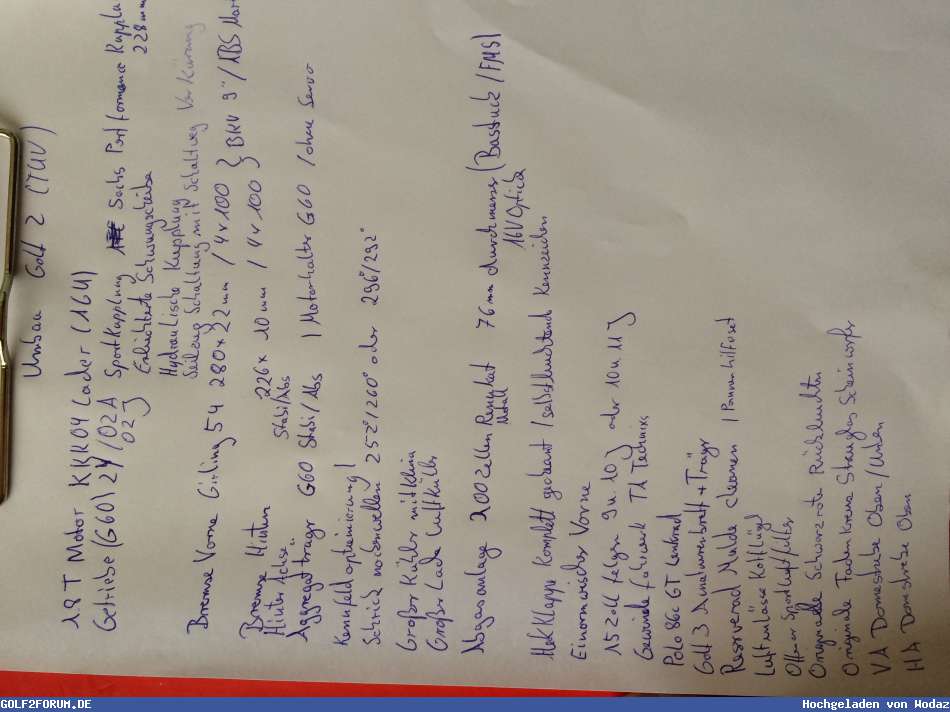 Umbau Golf 2 (TÜV)
1.8T Motor KKK04 Lader (1.6U)
Getriebe (G60) 2Y /02A Sportkupplung Sachs Performance Kupplu
02J Erleichterte Schwungscheibe 228mm
Hydraulische Kupplung
Seilzug Schaltung mit Schaltweg Verkürzung
Bremse Vorne Girling 54 280x22mm / 4x100 } BKV 9" / ABS
Bremse Hinten 226x 10mm / 4x100
Hinter Achse Stabi/Abs
Aggregatträger G60 Stabi / Abs / Motorhalter G60 / ohne Servo
Kennfeldoptimierung /
Schrick nockenwellen 252°/260° oder 296°/292°
Großer Kühler mit klima
Großer Lade luftkühler
Abgasanlage 200 Zellen Rennkat 76mm durchmesser (Bastuck / FMS)
Metall 16V Optick
Heckklappe Komplett gecleant / selbstleuchtend Kennzeichen
Einarmwischer Vorne
15 Zoll felgen 9 u. 10J oder 10 u 11J
Gewinde fahrwerk TA Technix
Polo 86c GT Lenkrad
Golf 3 Armaturenbrett + Träger
Reserverad Mulde cleanen / Pannenhilfsset
Luftauslässe Kotflügel
Offener Sportluftfilter
Originale Schwarzrote Rückleuchten
Originale Fadenkreuz Steuglas Scheinwerfer
VA Domstrebe Oben / Unten
HA Domstrebe Oben
GOLF2FORUM.DE
Hochgeladen von Wodaz